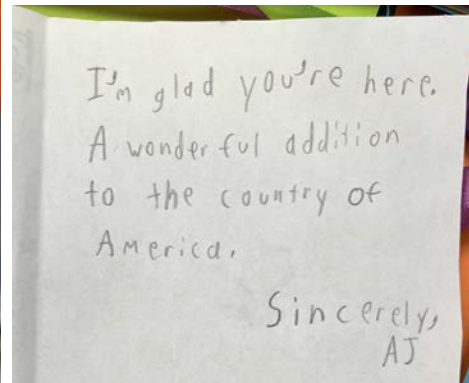 I'm glad you're here.
A wonderful addition
to the country of
America.
Sincerely,
AJ